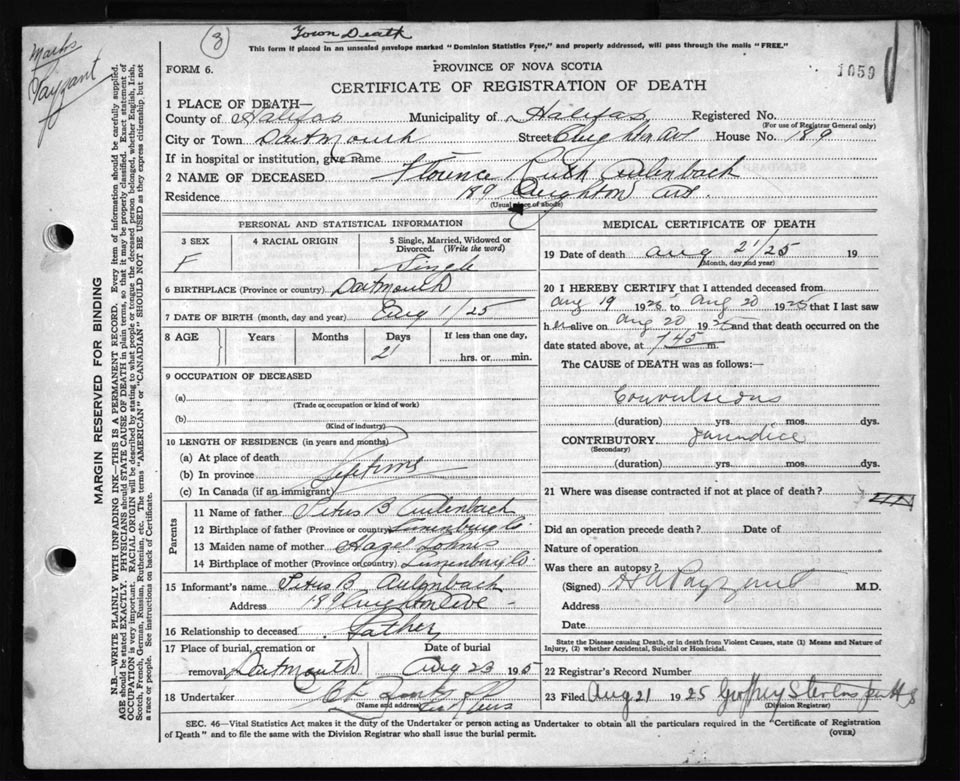 Town Death
(3)
Marks
Payzant
This form if placed in an unsealed envelope marked "Dominion Statistics Free," and properly addressed, will pass through the mails "FREE."
FORM 6.
PROVINCE OF NOVA SCOTIA
1059
CERTIFICATE OF REGISTRATION OF DEATH
1 PLACE OF DEATH—
County of Halifax Municipality of Halifax Registered No.
(For use of Registrar General only)
City or Town Dartmouth Street Crighton Ave House No. 189
If in hospital or institution, give name
2 NAME OF DECEASED Florence Ruth Aulenbach
Residence 189 Crighton Ave.
(Usual place of abode)
PERSONAL AND STATISTICAL INFORMATION
3 SEX 4 RACIAL ORIGIN 5 Single, Married, Widowed or Divorced. (Write the word)
F Single
6 BIRTHPLACE (Province or country) Dartmouth
7 DATE OF BIRTH (month, day and year) Aug 1/25
8 AGE Years Months Days If less than one day,
21 hrs. or min.
9 OCCUPATION OF DECEASED
(a)
(Trade or occupation or kind of work)
(b)
(Kind of industry)
10 LENGTH OF RESIDENCE (in years and months)
(a) At place of death
(b) In province Lifetime
(c) In Canada (if an immigrant)
Parents
11 Name of father Titus B Aulenbach
12 Birthplace of father (Province or country) Lunenburg Co.
13 Maiden name of mother Hazel Lohnes
14 Birthplace of mother (Province or country) Lunenburg Co
15 Informant's name Titus B. Aulenbach
Address 189 Crighton Ave
16 Relationship to deceased Father
17 Place of burial, cremation or Date of burial
removal Dartmouth Aug 23 1925
18 Undertaker
(Name and address)
MEDICAL CERTIFICATE OF DEATH
19 Date of death Aug 21/25 19
(Month, day and year)
20 I HEREBY CERTIFY that I attended deceased from
Aug 19 1925 to Aug 20 1925 that I last saw
her alive on Aug 20 1925 and that death occurred on
date stated above, at 7 45 m.
The CAUSE of DEATH was as follows:—
Convulsions
(duration) yrs. mos. dys.
CONTRIBUTORY Jaundice
(Secondary)
(duration) yrs. mos. dys.
21 Where was disease contracted if not at place of death?
Did an operation precede death? Date of
Nature of operation
Was there an autopsy?
(Signed) H A Payzant M.D.
Address
Date
State the Disease causing Death, or in death from Violent Causes, state (1) Means and Nature of Injury, (2) whether Accidental, Suicidal or Homicidal.
22 Registrar's Record Number
23 Filed Aug 21 1925 Geoffrey Stevens
(Division Registrar)
SEC. 46—Vital Statistics Act makes it the duty of the Undertaker or person acting as Undertaker to obtain all the particulars required in the "Certificate of Registration
of Death" and to file the same with the Division Registrar who shall issue the burial permit.
(OVER)
MARGIN RESERVED FOR BINDING
N.B.—WRITE PLAINLY WITH UNFADING INK—THIS IS A PERMANENT RECORD. Every item of information should be carefully supplied.
AGE should be stated EXACTLY. PHYSICIANS should STATE CAUSE OF DEATH in plain terms, so that it may be properly classified. Exact statement of
OCCUPATION is very important. RACIAL ORIGIN will be described by stating to what people or tongue the deceased person belonged, whether English, Irish,
Scotch, French, German, Russian, Ruthenian, etc. The terms "AMERICAN" or "CANADIAN" SHOULD NOT BE USED as they express citizenship, but not
a race or people. See instructions on back of Certificate.